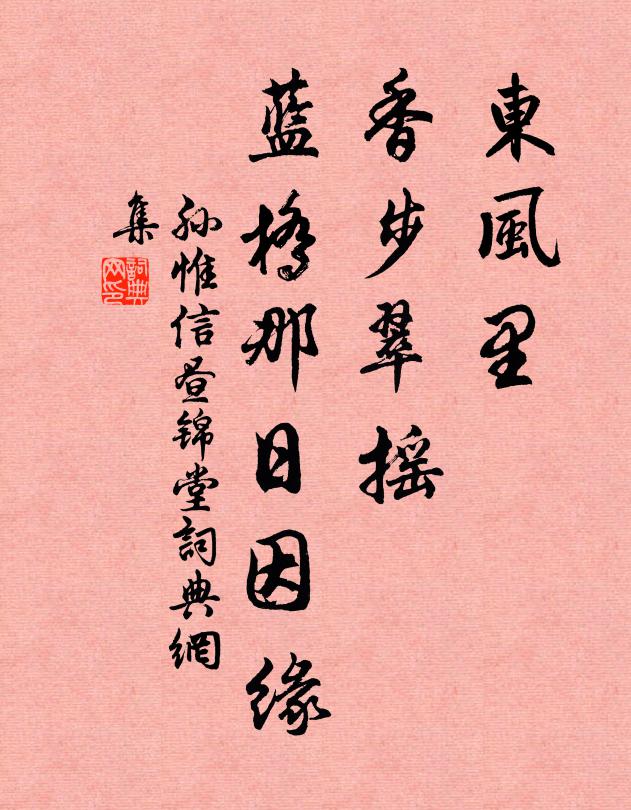 東風里
香步翠摇
藍橋那日因緣
孙惟信昼锦堂詞典網
集
詞典
网印